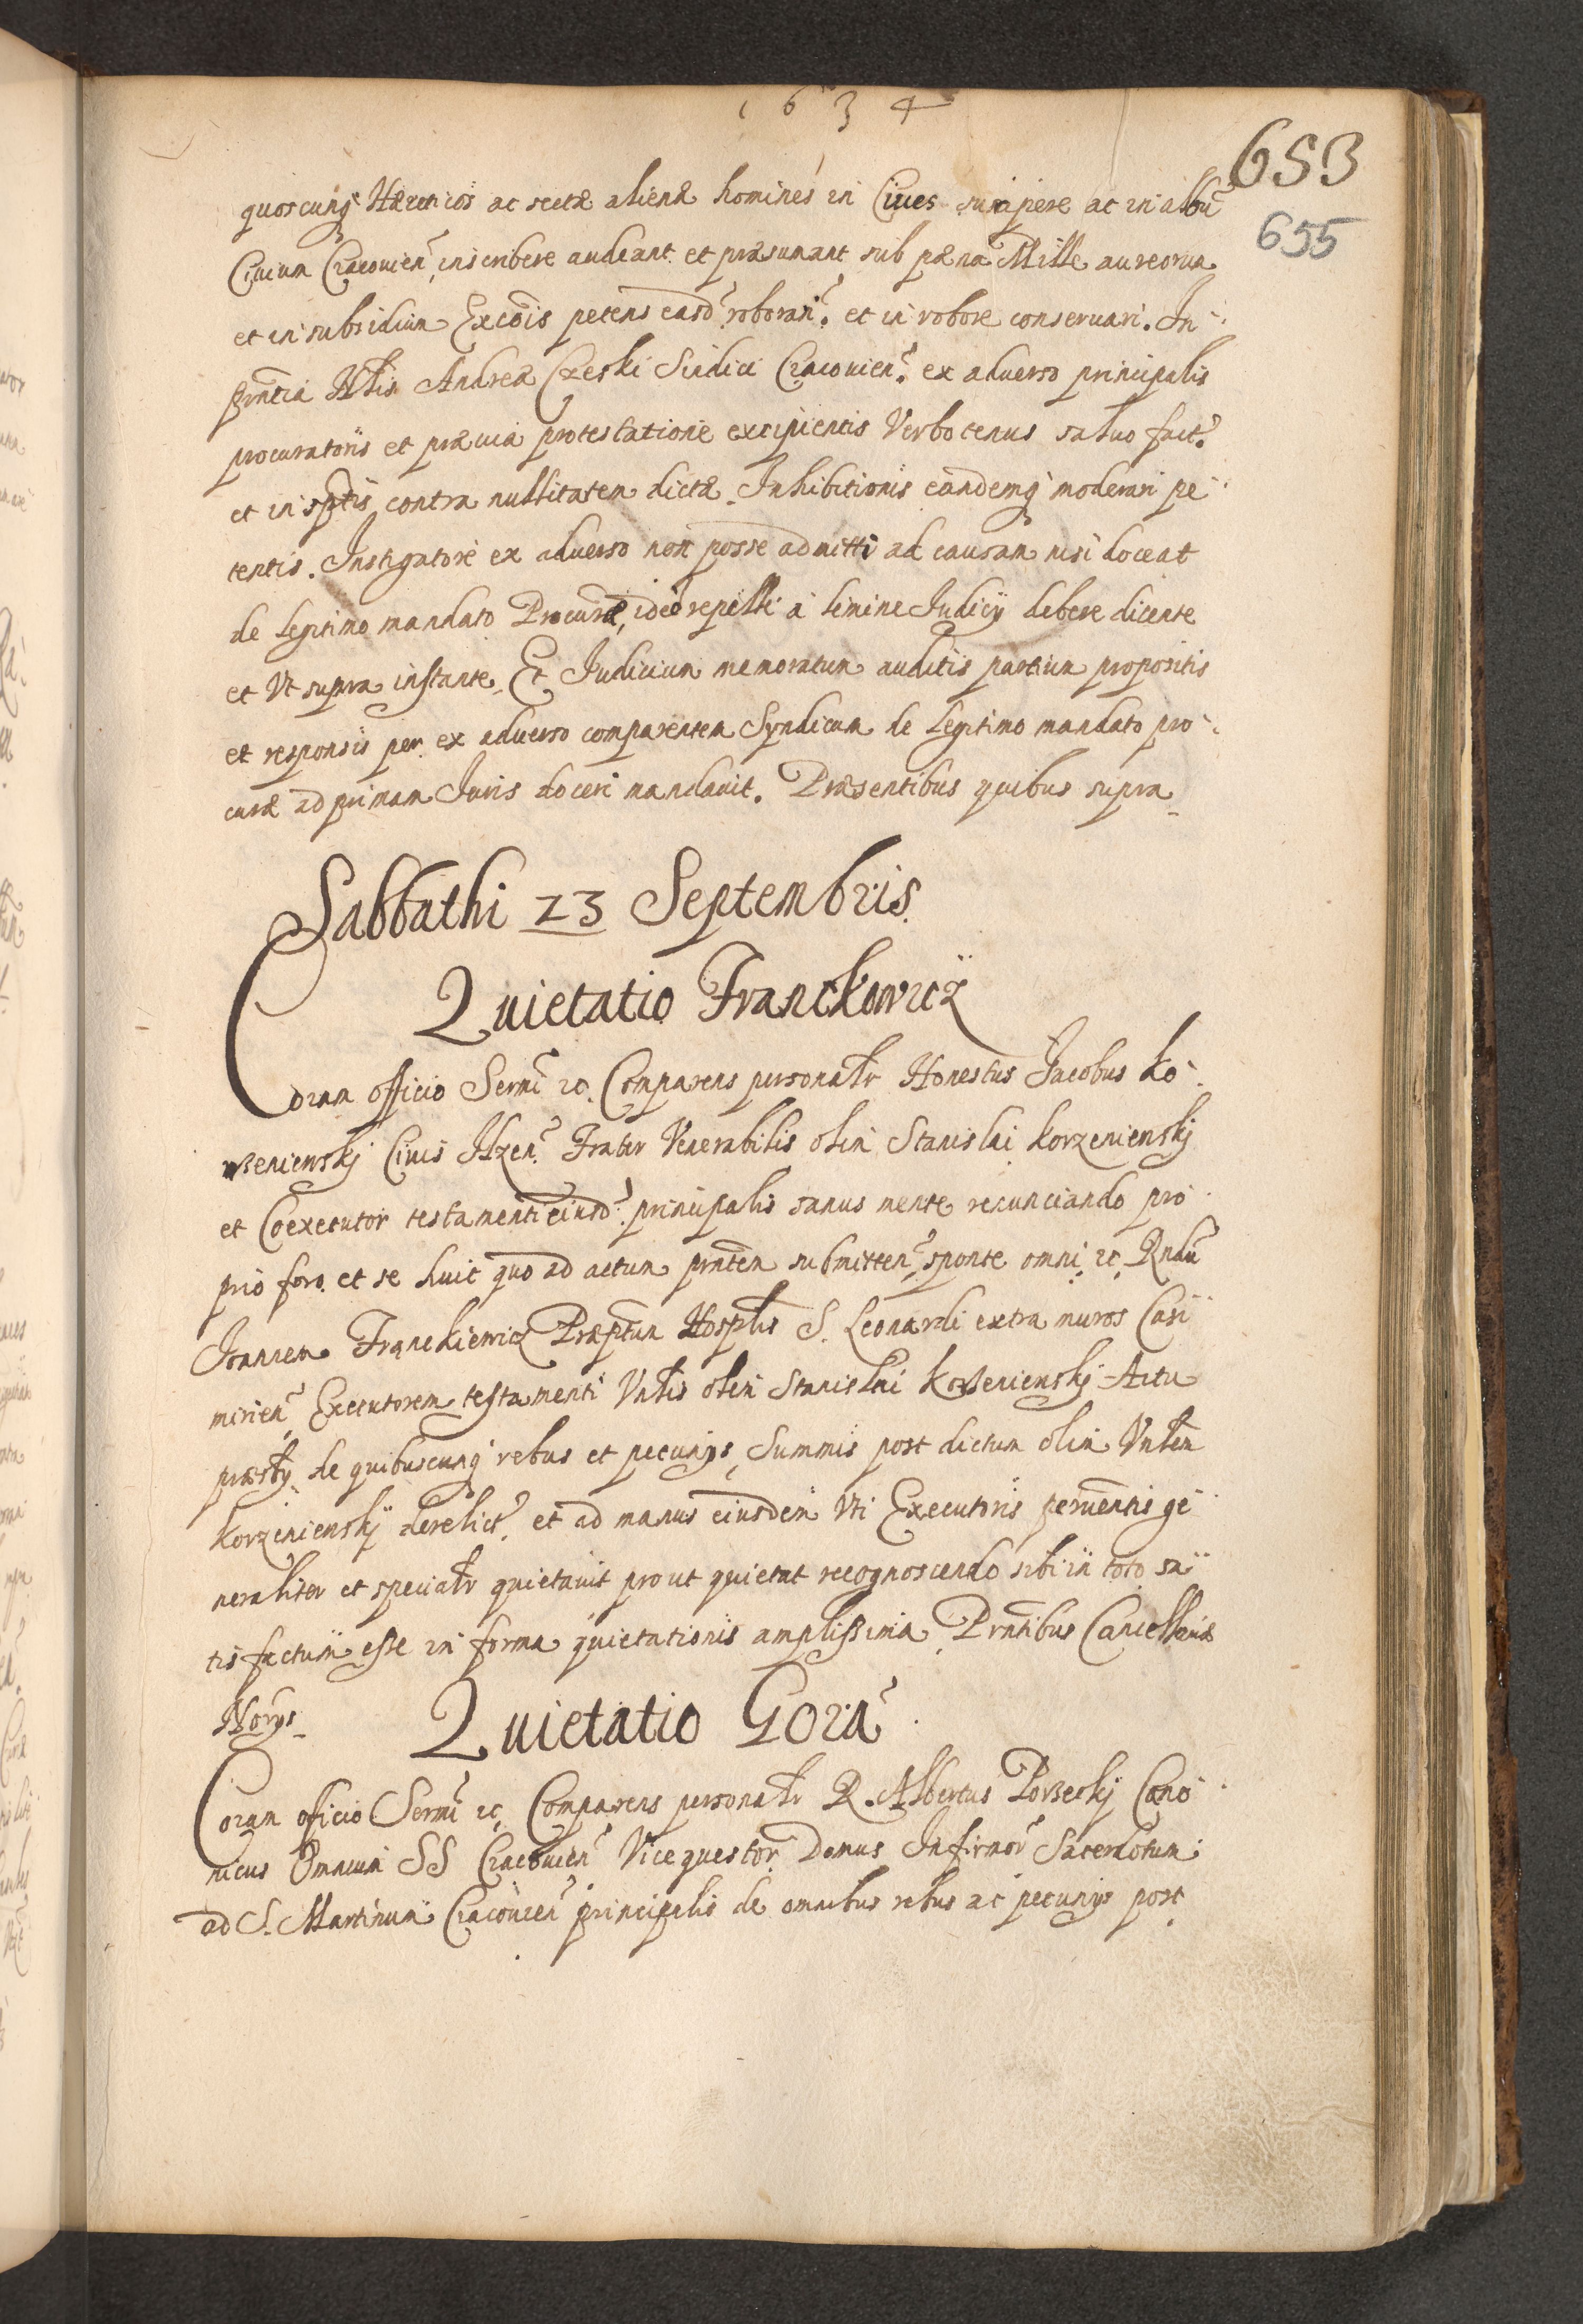 1634
653
655
quoscunq Hæreticos ac sectæ alienæ homines in Ciues suscipere ac in albū
Ciuium Cracouien̄ inscribere audeant et præsumant sub pæna Mille aureorum
et in subsidium Excōis petens easd̄ roborari et in robore conseruari. In
pn̄tia Nlis Andreæ Czeski Sindici Cracouien̄. ex aduerso principalis
procuratoris et præuia protestatione excipientis Verbotenus saluo fact.
et in sptis contra nullitatem dictæ Inhibitionis eandemq moderari pe
tentis. Instigatore ex aduerso non posse admitti ad causam nisi doceat
de legitimo mandato Procuræ, ideo repelli a limine Iudicij debere dicente
et Vt supra instante, Et Iudicium memoratum auditis partium propositis
et responsis per ex aduerso comparentem Syndicum de legitimo mandato pro
curæ ad primam Iuris doceri mandauit. Præsentibus quibus supra
Sabbathi 23 Septembris
Quietatio Franckowicz
Coram officio Sermi rc. Comparens personalr Honestus Jacobus Ko
rzenienskj Ciuis Ilzen̄. Frater Venerabilis olim Stanislai Korzenienskj
et Coexecutor testamenti eiusd̄. principalis sanus mente renunciando pro
prio foro et se huic quo ad actum pn̄tem submitten̄ sponte omni rc. Rndū
Joannem Franckiewicz Præptum Hosplis S. Leonardi extra muros Casi
mirien̄ Executorem testamenti Vnlis olim Stanislai Korzenienskj Actu
præsb̄. de quibuscunq rebus et pecunijs, Summis post dictum olim Vnlem
Korzenienskj derelict. et ad manus eiusdem Vti Executoris peruentis ge
neraliter et specialr quietauit prout quietat recognoscendo sibi in toto sa
tisfactum esse in forma quietationis amplissima. Prn̄tibus Cancellariæ
Norijs
Quietatio Gorā
Coram officio Sermi rc. Comparens personalr R. Albertus Porzeckj Cano
nicus Omnium SS Cracouien̄ Vicequestor Domus Infirmor̄ Sacerdotum
ad S. Martinum Cracouien̄ principalis de omnibus rebus ac pecunijs post